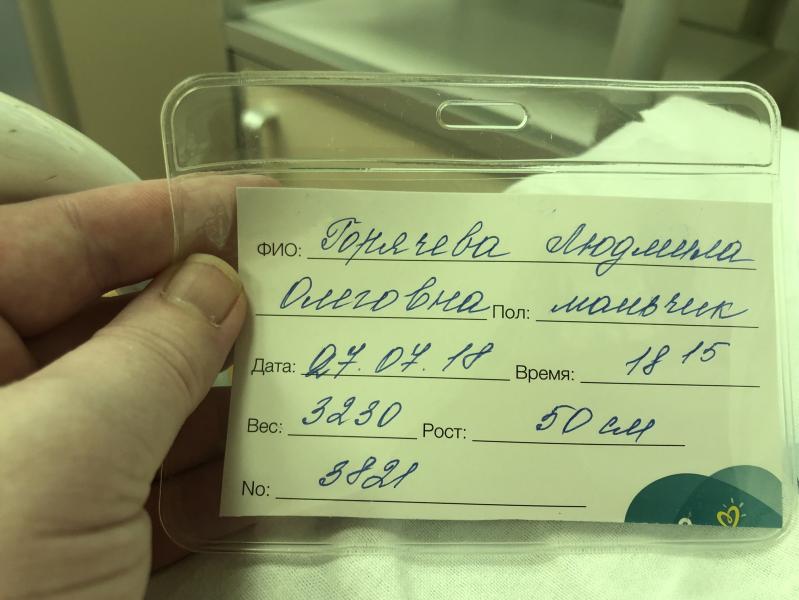 ФИО: Горячева Людмила
Олеговна Пол: мальчик
Дата: 27.07.18 Время: 18 15
Вес: 3230 Рост: 50 см
No: 3821